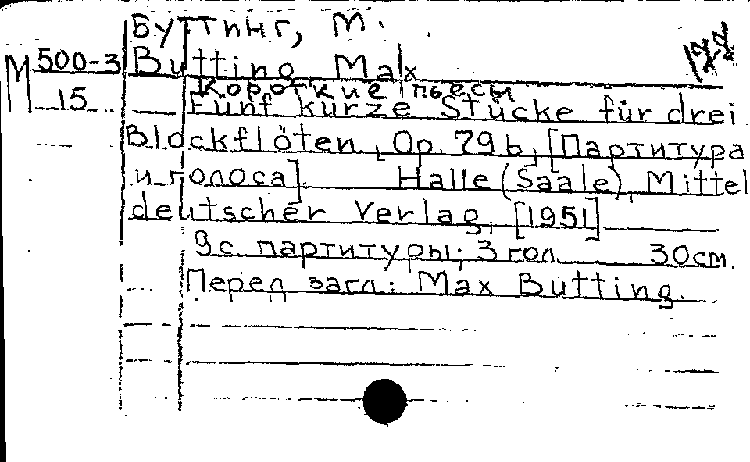 Буттинг, М.
М 500-3 Butting Max 122
15 Короткие пьесы
Fünf kurze Stücke für drei
Blockflöten, Op. 79b, [Партитура
и голоса]. Halle (Saale), Mittel
deutscher Verlag, [1951]
9 с. партитуры; 3 гол. 30 см.
Перед загл.: Max Butting.